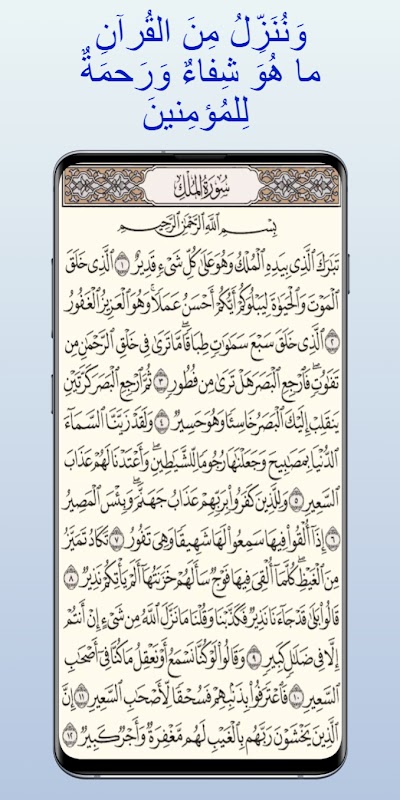 وَنُنَزِّلُ مِنَ القُرآنِ
ما هُوَ شِفاءٌ وَرَحمَةٌ
لِلمُؤمِنينَ
سُورَةُ المُلْكِ
بِسْمِ اللَّهِ الرَّحْمَٰنِ الرَّحِيمِ
تَبَٰرَكَ ٱلَّذِى بِيَدِهِ ٱلْمُلْكُ وَهُوَ عَلَىٰ كُلِّ شَىْءٍ قَدِيرٌ ١ ٱلَّذِى خَلَقَ
ٱلْمَوْتَ وَٱلْحَيَوٰةَ لِيَبْلُوَكُمْ أَيُّكُمْ أَحْسَنُ عَمَلًا ۚ وَهُوَ ٱلْعَزِيزُ ٱلْغَفُورُ
٢ ٱلَّذِى خَلَقَ سَبْعَ سَمَٰوَٰتٍ طِبَاقًا ۖ مَّا تَرَىٰ فِى خَلْقِ ٱلرَّحْمَٰنِ مِن
تَفَٰوُتٍ ۖ فَٱرْجِعِ ٱلْبَصَرَ هَلْ تَرَىٰ مِن فُطُورٍ ٣ ثُمَّ ٱرْجِعِ ٱلْبَصَرَ كَرَّتَيْنِ
يَنقَلِبْ إِلَيْكَ ٱلْبَصَرُ خَاسِئًا وَهُوَ حَسِيرٌ ٤ وَلَقَدْ زَيَّنَّا ٱلسَّمَآءَ
ٱلدُّنْيَا بِمَصَٰبِيحَ وَجَعَلْنَٰهَا رُجُومًا لِّلشَّيَٰطِينِ ۖ وَأَعْتَدْنَا لَهُمْ عَذَابَ
ٱلسَّعِيرِ ٥ وَلِلَّذِينَ كَفَرُوا۟ بِرَبِّهِمْ عَذَابُ جَهَنَّمَ ۖ وَبِئْسَ ٱلْمَصِيرُ
٦ إِذَآ أُلْقُوا۟ فِيهَا سَمِعُوا۟ لَهَا شَهِيقًا وَهِىَ تَفُورُ ٧ تَكَادُ تَمَيَّزُ
مِنَ ٱلْغَيْظِ ۖ كُلَّمَآ أُلْقِىَ فِيهَا فَوْجٌ سَأَلَهُمْ خَزَنَتُهَآ أَلَمْ يَأْتِكُمْ نَذِيرٌ ٨
قَالُوا۟ بَلَىٰ قَدْ جَآءَنَا نَذِيرٌ فَكَذَّبْنَا وَقُلْنَا مَا نَزَّلَ ٱللَّهُ مِن شَىْءٍ إِنْ أَنتُمْ
إِلَّا فِى ضَلَٰلٍ كَبِيرٍ ٩ وَقَالُوا۟ لَوْ كُنَّا نَسْمَعُ أَوْ نَعْقِلُ مَا كُنَّا فِىٓ أَصْحَٰبِ
ٱلسَّعِيرِ ١٠ فَٱعْتَرَفُوا۟ بِذَنۢبِهِمْ فَسُحْقًا لِّأَصْحَٰبِ ٱلسَّعِيرِ ١١ إِنَّ
ٱلَّذِينَ يَخْشَوْنَ رَبَّهُم بِٱلْغَيْبِ لَهُم مَّغْفِرَةٌ وَأَجْرٌ كَبِيرٌ ١٢